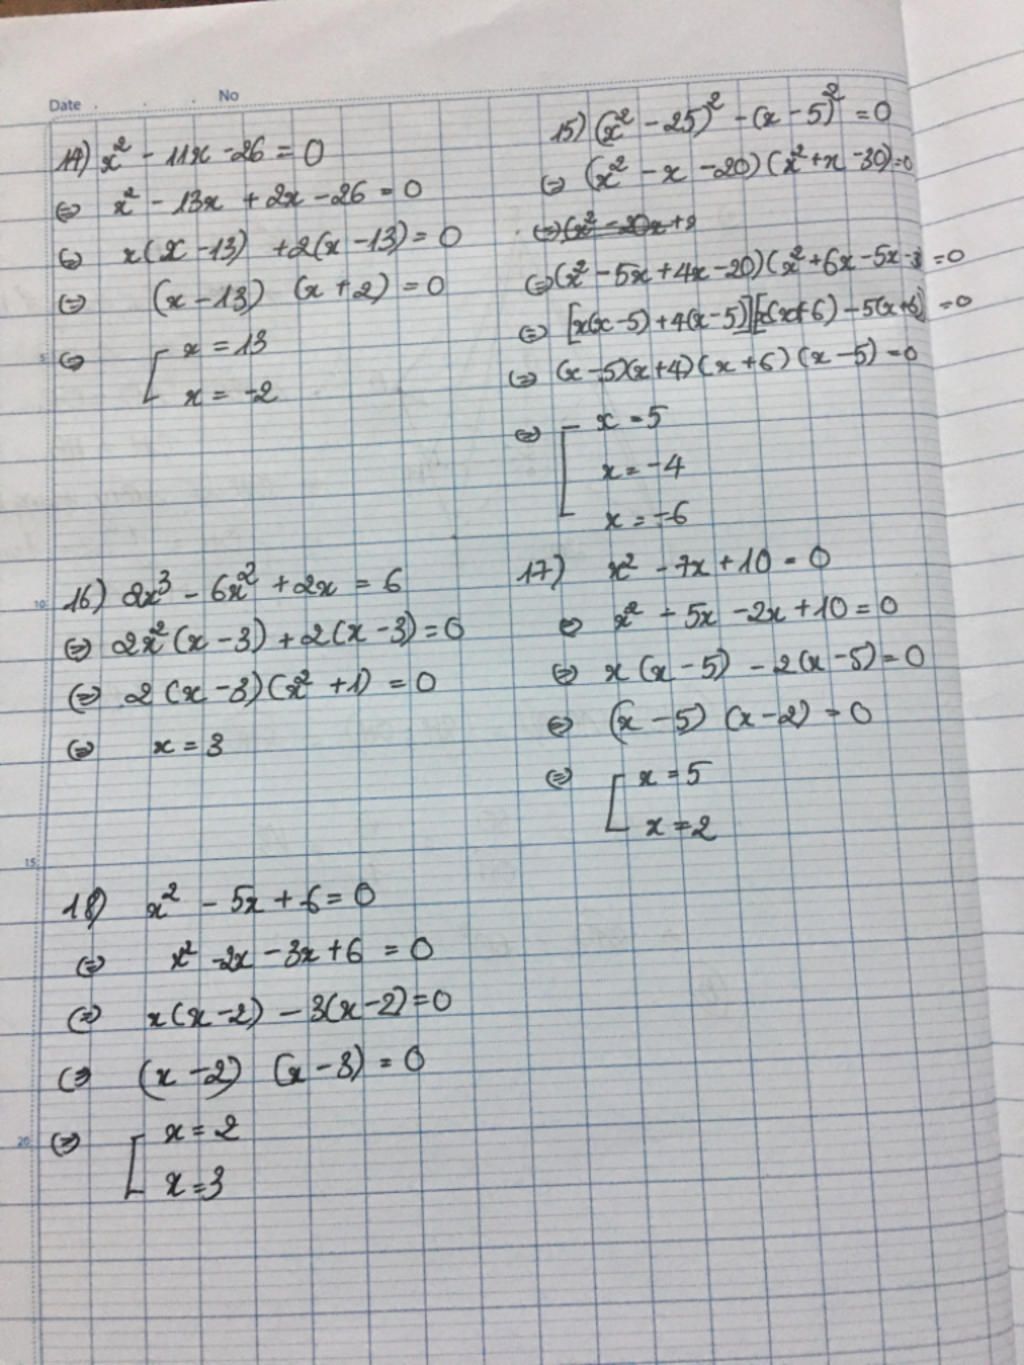 Date
No
14) x² - 11x - 26 = 0
⇔ x² - 13x + 2x - 26 = 0
⇔ x(x - 13) + 2(x - 13) = 0
⇔ (x - 13) (x + 2) = 0
5
⇔ [ x = 13
x = -2
15) (x² - 25)² - (x - 5)² = 0
⇔ (x² - x - 20)(x² + x - 30) = 0
⇔ (x² - 5x + 4x - 20)(x² + 6x - 5x - 3 = 0
⇔ [x(x - 5) + 4(x - 5)][x(x + 6) - 5(x + 6)] = 0
⇔ (x - 5)(x + 4)(x + 6)(x - 5) = 0
⇔ [ x = 5
x = -4
x = -6
10
16) 2x³ - 6x² + 2x = 6
⇔ 2x²(x - 3) + 2(x - 3) = 0
⇔ 2(x - 3)(x² + 1) = 0
⇔ x = 3
17) x² - 7x + 10 = 0
⇔ x² - 5x - 2x + 10 = 0
⇔ x(x - 5) - 2(x - 5) = 0
⇔ (x - 5) (x - 2) = 0
⇔ [ x = 5
x = 2
15
18) x² - 5x + 6 = 0
⇔ x² - 2x - 3x + 6 = 0
⇔ x(x - 2) - 3(x - 2) = 0
⇔ (x - 2) (x - 3) = 0
20
⇔ [ x = 2
x = 3